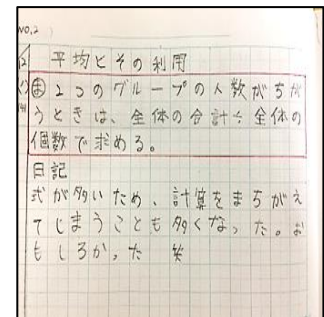 NO.2
平均とその利用
ま 2つのグループの人数がちが
うときは、全体の合計÷全体の
個数で求める。
日記
式が多いため、計算をまちがえ
てしまうことも多くなった。お
もしろかった 笑